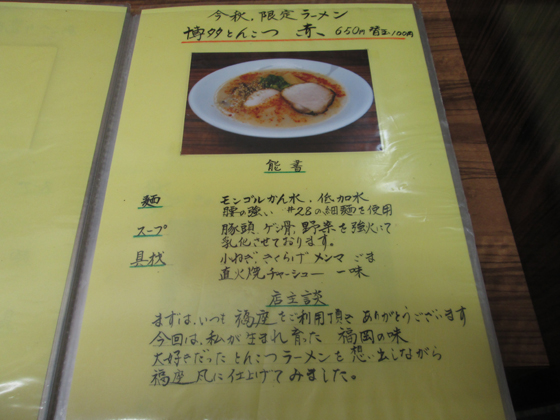 今秋、限定ラーメン
博多とんこつ 赤、 650円 替玉100円
能書
麺 モンゴルかん水、低加水
腰の強い #28の細麺を使用
スープ 豚頭、ゲン骨、野菜を強火にて
乳化させております。
具材 小ねぎ、きくらげ メンマ ごま
直火焼チャーシュー 一味
店主談
まずは、いつも 福座をご利用頂き ありがとうございます
今回は、私が生まれ育った 福岡の味
大好きだったとんこつラーメンを 想い出しながら
福座風に仕上げてみました。